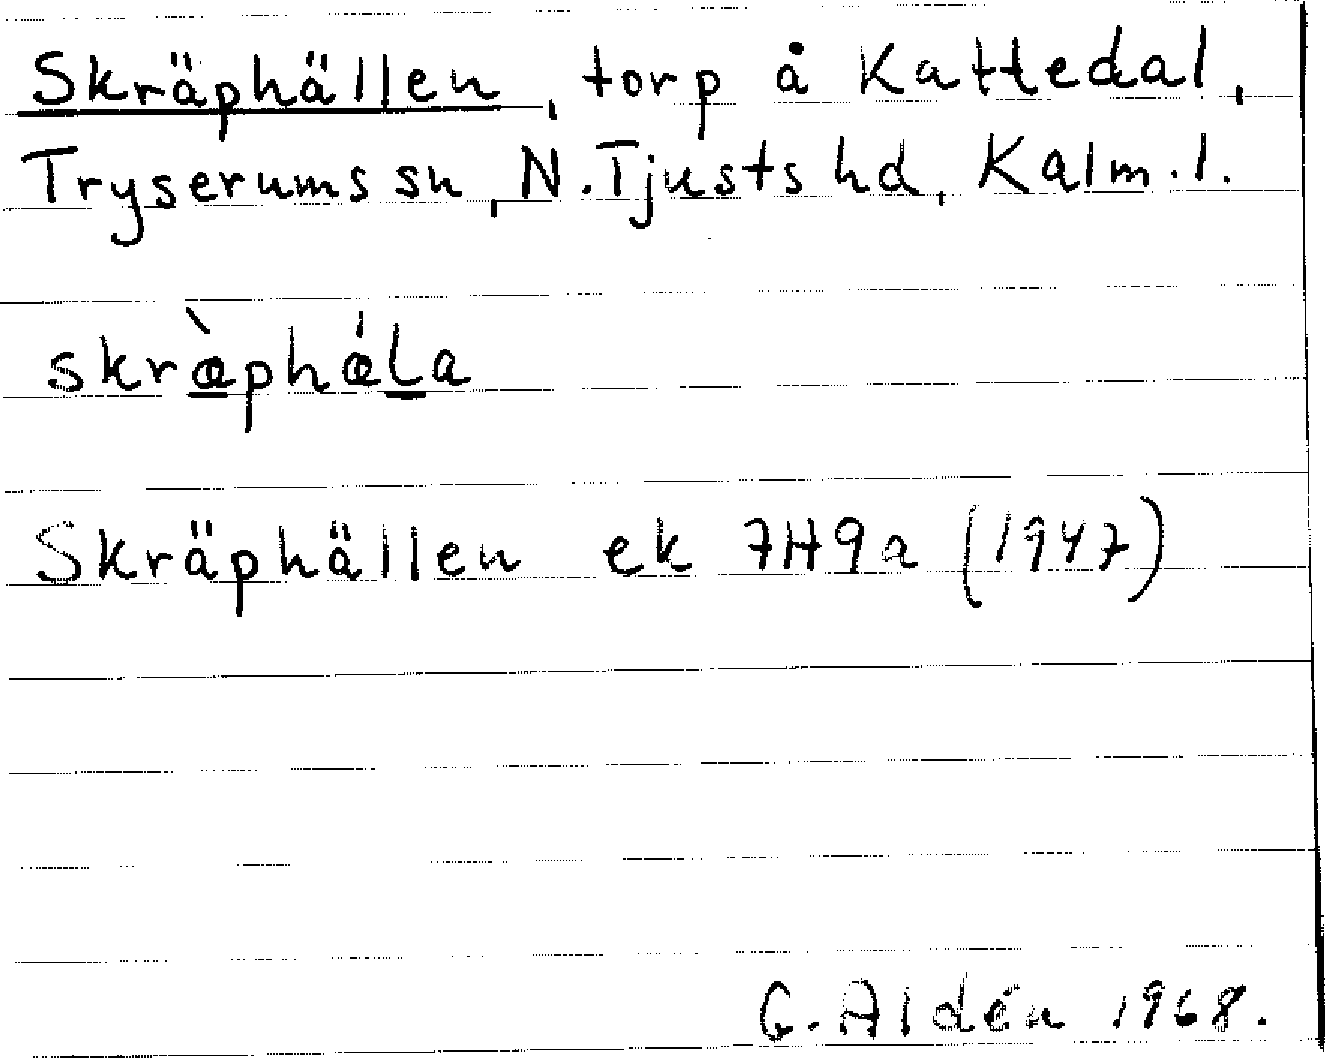 Skräphällen, torp å Kattedal,
Tryserums sn, N. Tjusts hd, Kalm. l.
skræ̀phǽla
Skräphällen ek 7H9a (1947)
G. Aldén 1968.